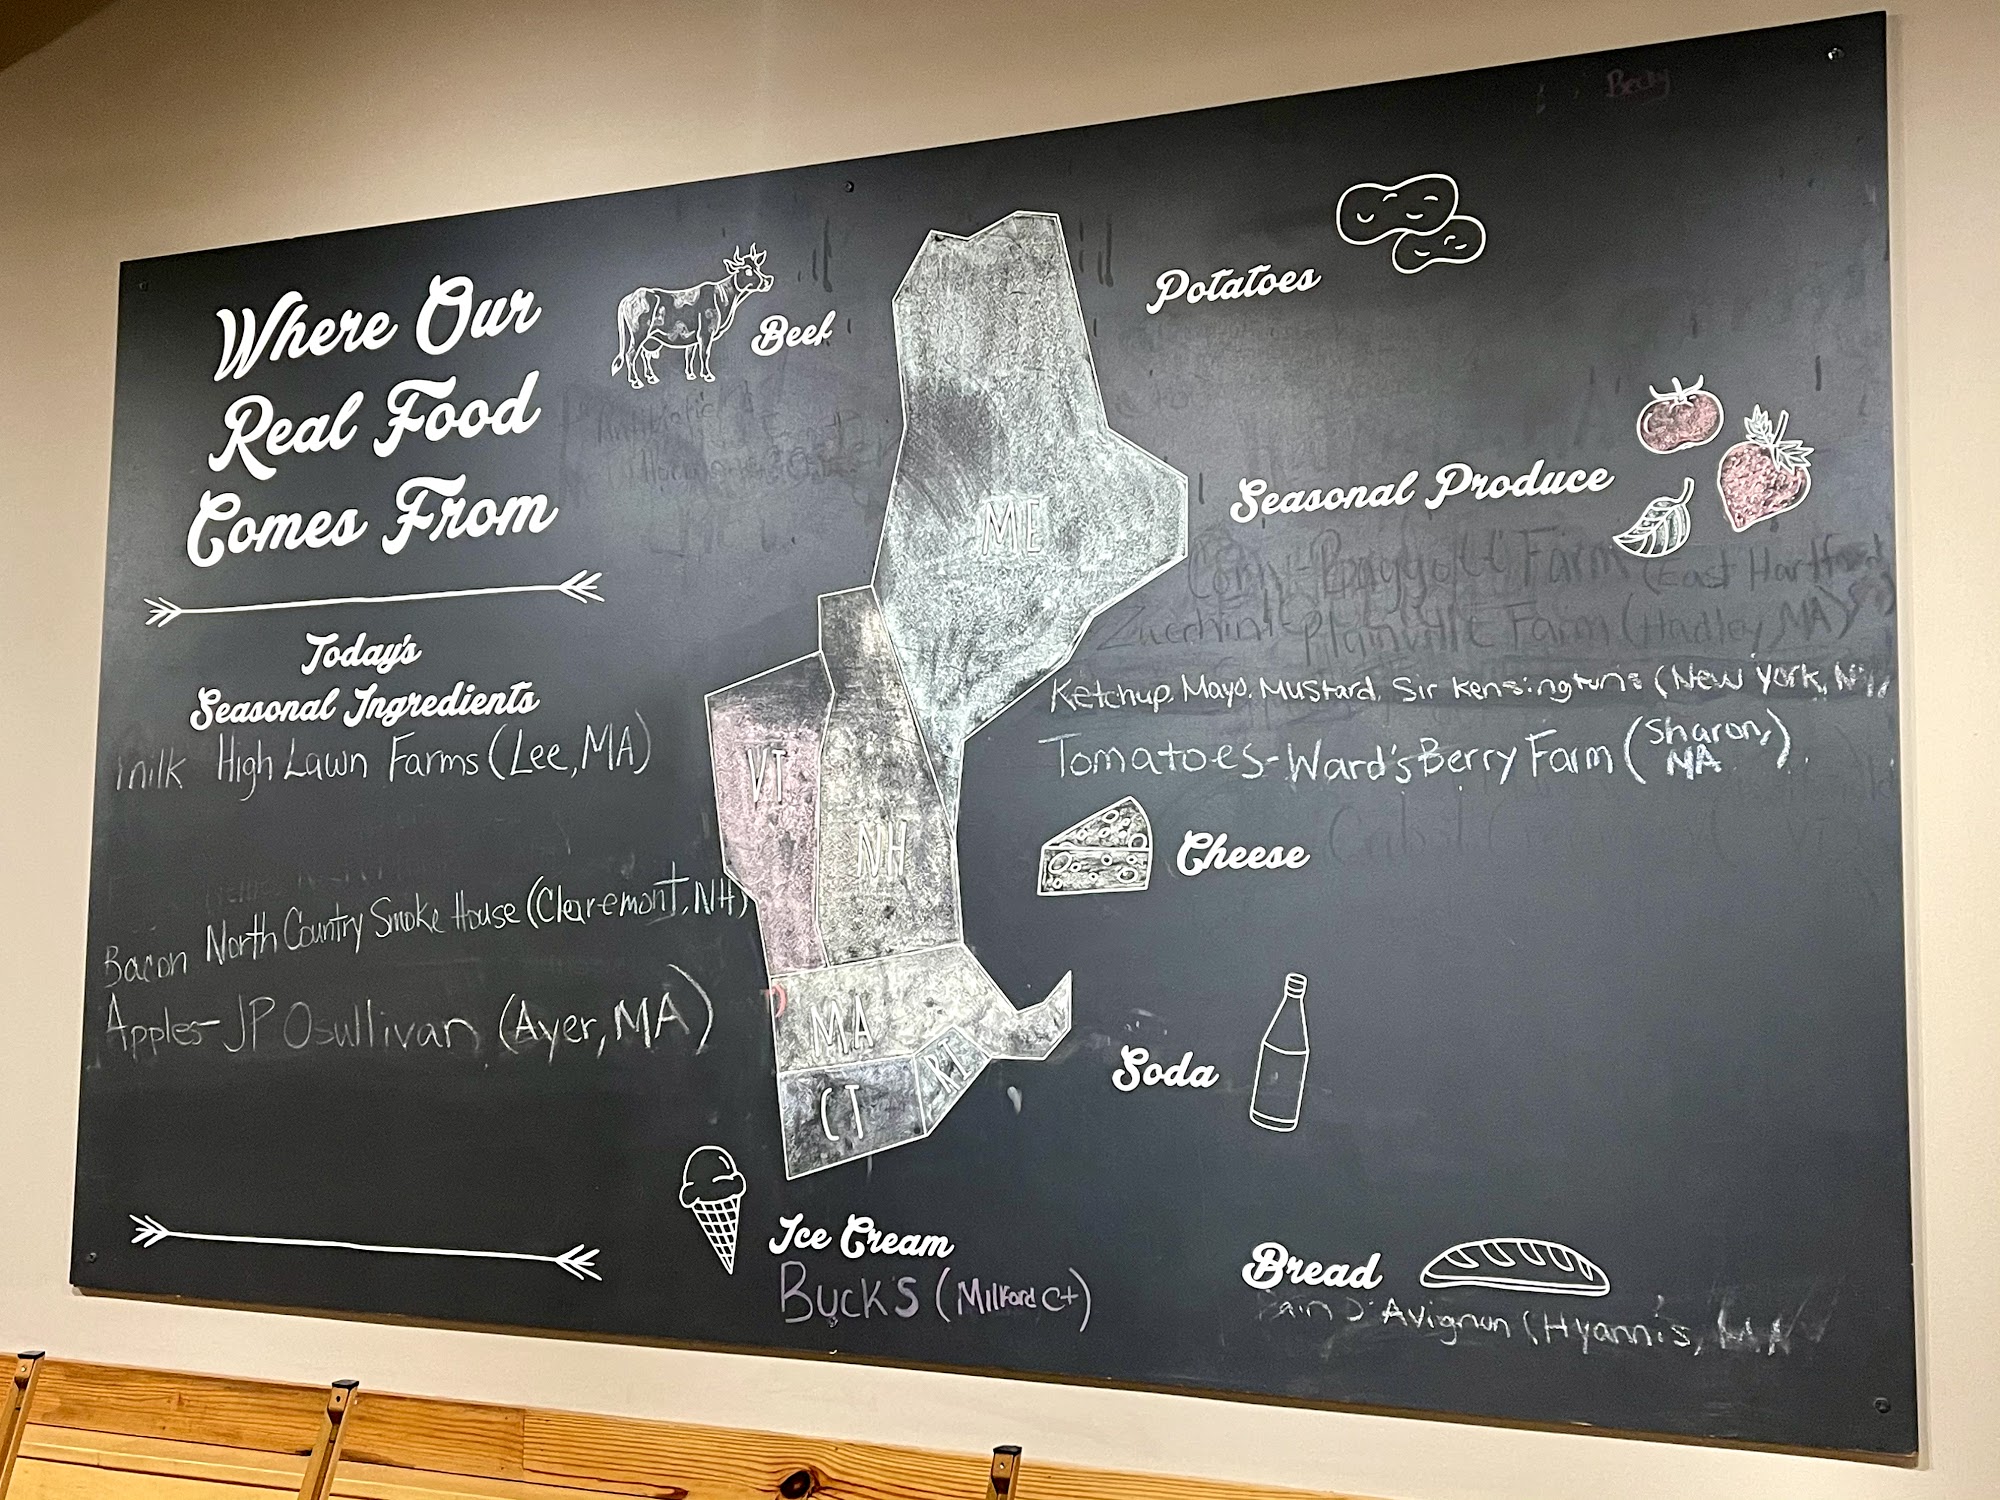 Where Our
Real Food
Comes From
Today's
Seasonal Ingredients
milk High Lawn Farms (Lee, MA)
Bacon North Country Smoke House (Claremont, NH)
Apples-JP Osullivan (Ayer, MA)
Beef
ME
VT
NH
MA
CT
RI
Ice Cream
Buck's (Milford Ct)
Becky
Potatoes
Seasonal Produce
Corn - Baggott Farm (East Hartford
Zucchini Plainville Farm (Hadley, MA)
Ketchup, Mayo, Mustard, Sir Kensingtons (New York, NY)
Tomatoes-Ward's Berry Farm (Sharon, MA)
Cheese
Soda
Bread
Pain D'Avignon (Hyannis, MA